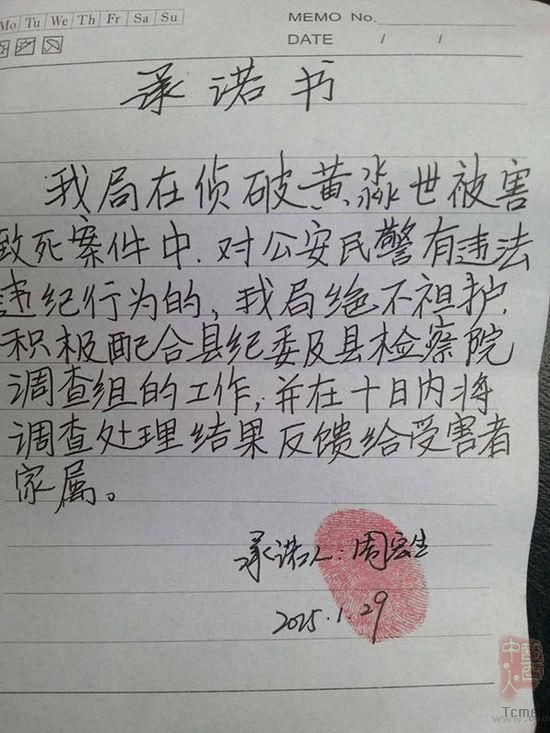 Mo Tu We Th Fr Sa Su
MEMO No.
DATE / /
承诺书
我局在侦破黄淼世被害
致死案件中.对公安民警有违法
违纪行为的,我局绝不袒护.
积极配合县纪委及县检察院
调查组的工作,并在十日内将
调查处理结果反馈给受害者
家属。
承诺人:周宏生
2015.1.29